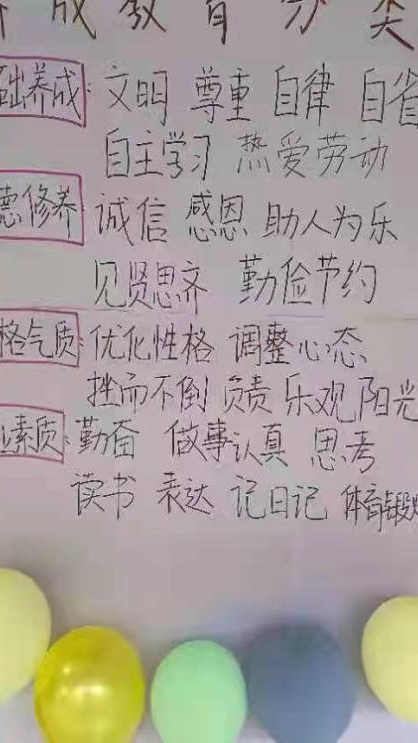 养成教育分类
础养成：文明 尊重 自律 自省
自主学习 热爱劳动
德修养：诚信 感恩 助人为乐
见贤思齐 勤俭节约
格气质：优化性格 调整心态
挫而不倒 负责 乐观 阳光
素质：勤奋 做事认真 思考
读书 表达 记日记 体育锻炼